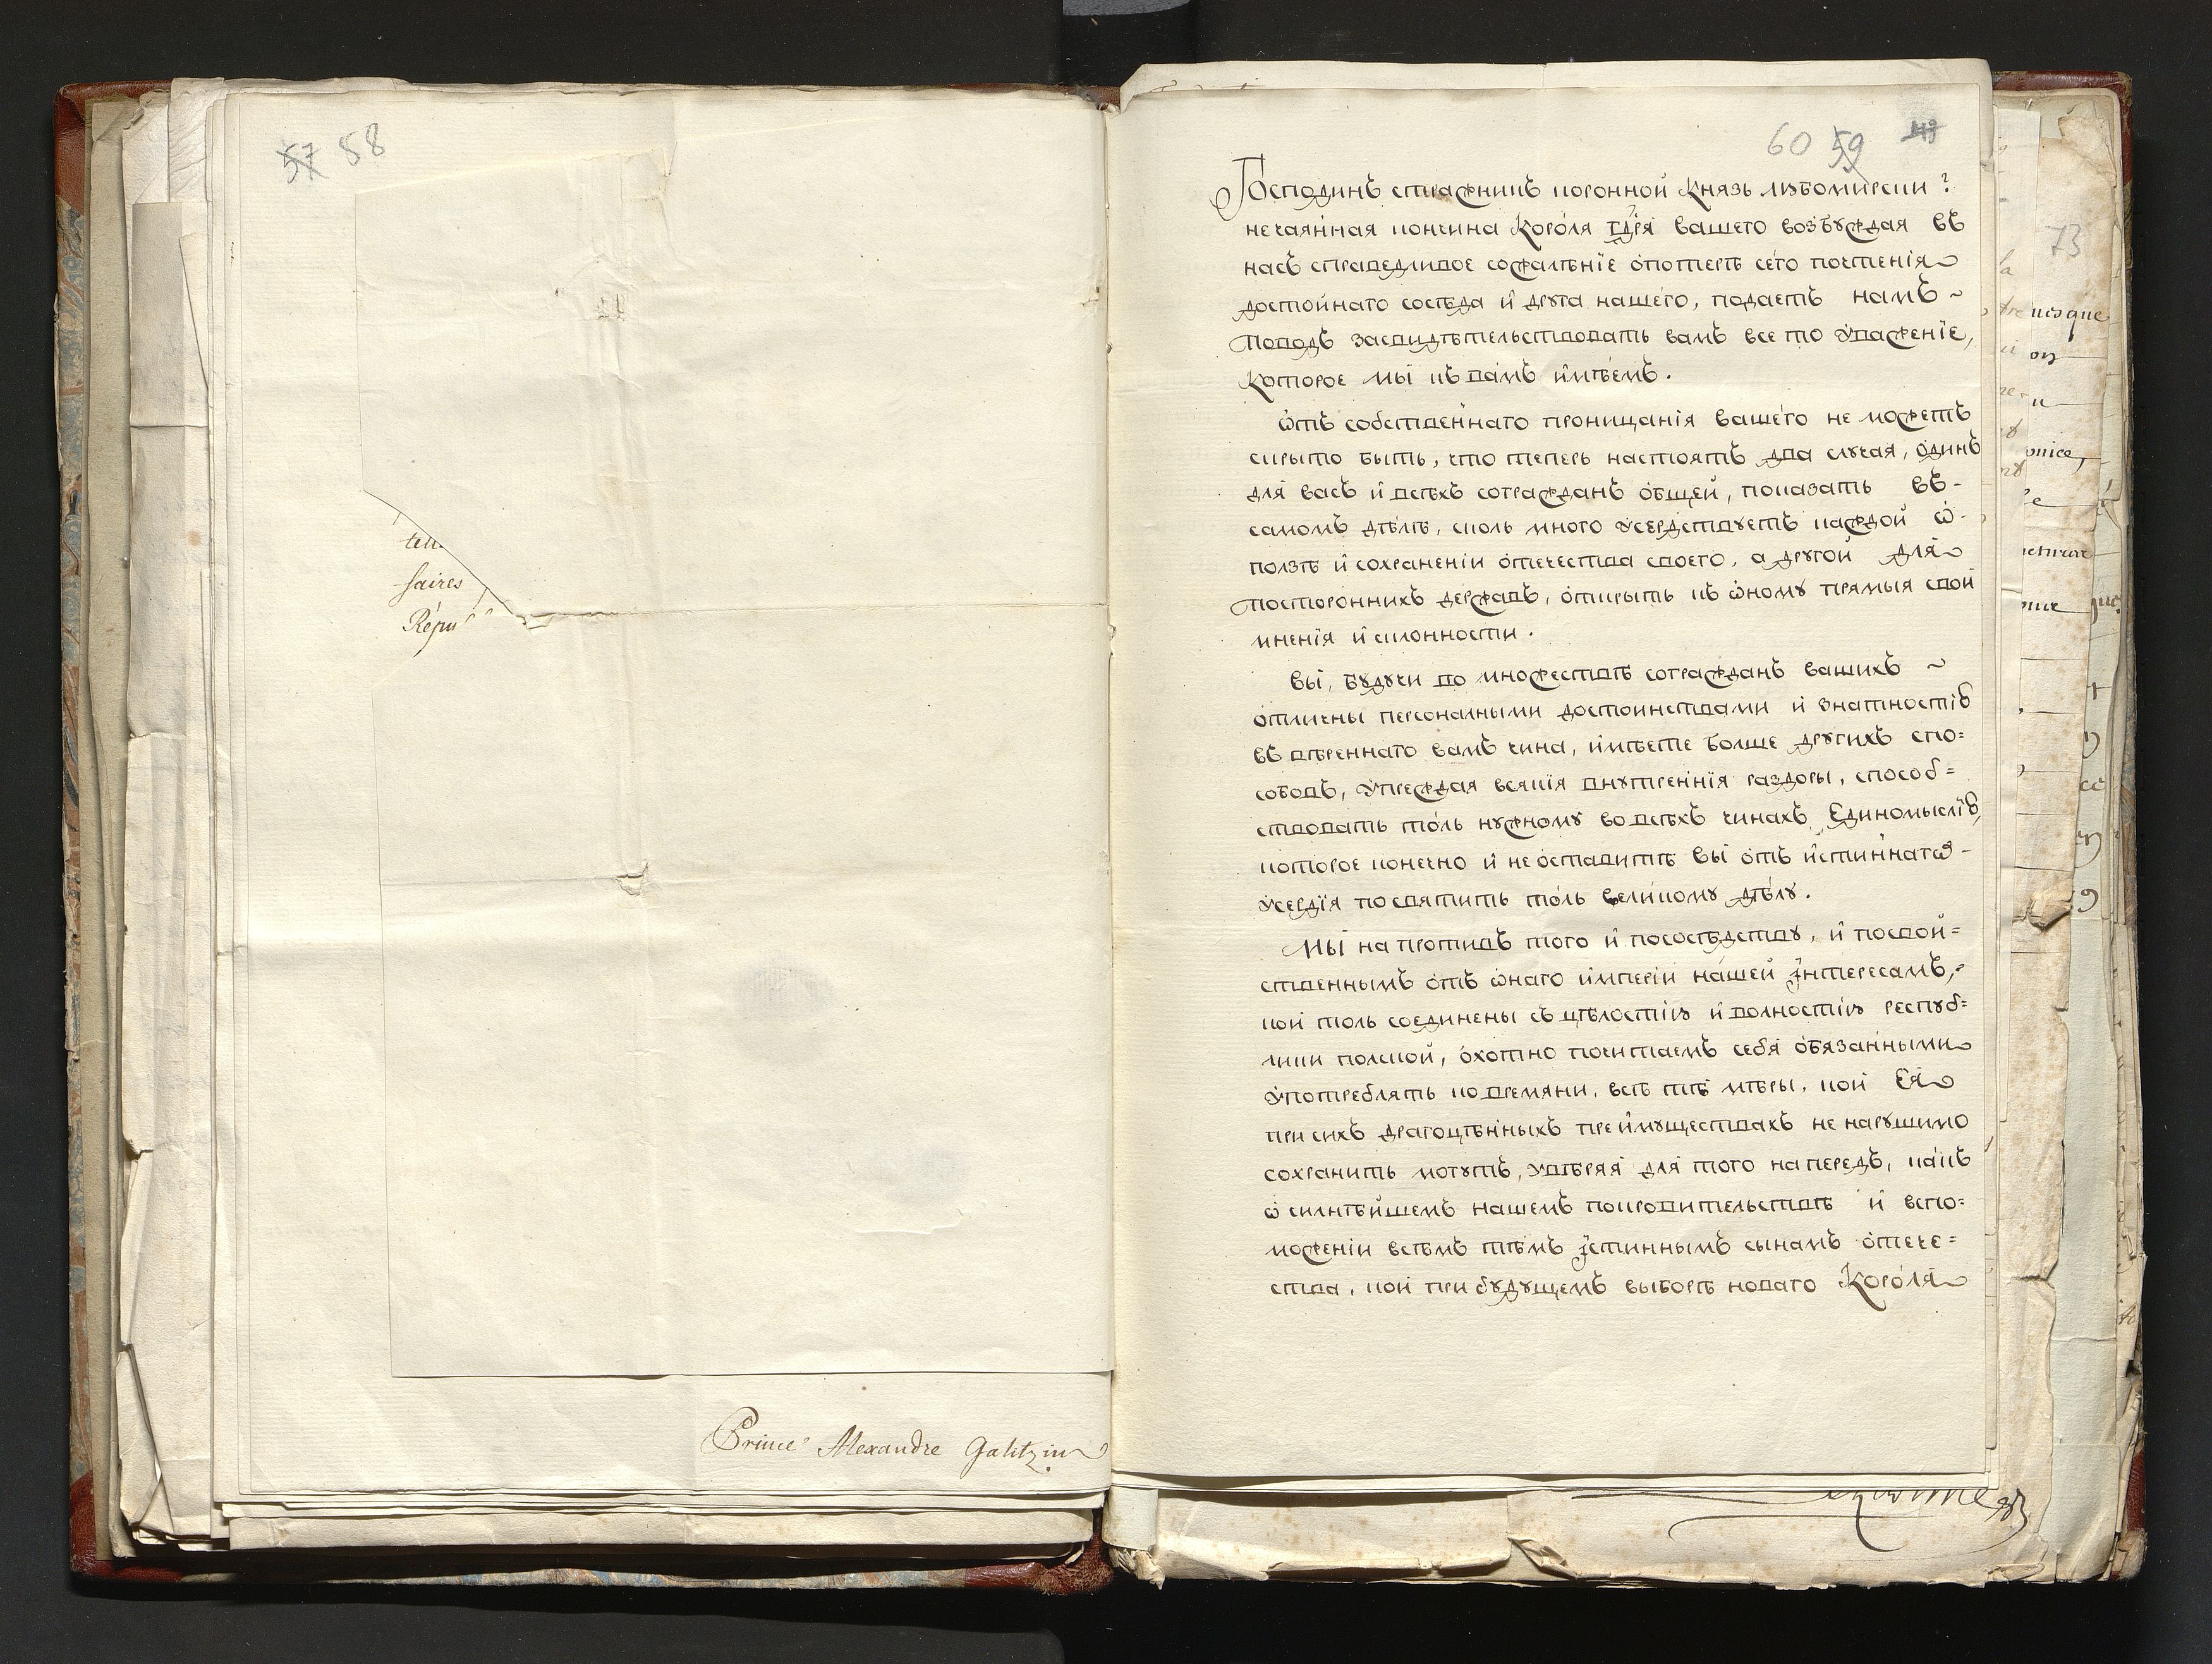 57 58
saires
Prince Alexandre Galitzin
60 59 49
Господинъ стражникъ коронной Князь любомирски?
нечаянная кончина Короля Гдря вашего возбуждая въ
насъ справедливое сожалѣніе опотерѣ сего почтенія
достойнаго сосѣда и друга нашего, подаетъ намъ ~
Поводъ засвидѣтельствовать вамъ все то уваженіе,
Которое мы къ вамъ имѣемъ.
ѿтъ собственнаго проницанія вашего не можетъ
скрыто быть, что теперь настоятъ два случая, одинъ
для васъ и всѣхъ сограждань общей, показать въ-
самомъ дѣлѣ, сколь много усердствуетъ каждой ѡ-
ползѣ и сохраненіи отечества своего, а другой для
Постороннихъ державъ, открыть къ ѡному прямыя свои
мненія и склонности.
Вы, будучи во множествѣ согражданъ вашихъ ~
отличны персоналными достоинствами и знатностію
ввѣреннаго вамъ чина, имѣете болше другихъ спо=
собовъ, упреждая всякія внутреннія раздоры, способ=
ствовать толь нужному во всѣхъ чинахъ Единомыслію,
которое конечно и не оставитѣ вы отъ истиннагѡ-
усердія посвятить толь великому дѣлу.
Мы на противъ того и пососѣдству, и посвой=
ственнымъ отъ ѡнаго имперіи нашей Интересамъ,
кои толь соединены съ цѣлостію и волностію респуб=
лики полской, охотно почитаемъ себя обязанными
употреблять ко времяни, всѣ тѣ мѣры, кои Ея
при сихъ драгоцѣнныхъ преимуществахъ не нарушимо
сохранить могутъ, увѣряя для того напередъ, какъ
ѡ силнѣйшемъ нашемъ покровительствѣ и вспо=
моженіи всѣмъ тѣмъ Истиннымъ сынамъ отече=
ства, кои при будущемъ выборѣ новаго Короля
73